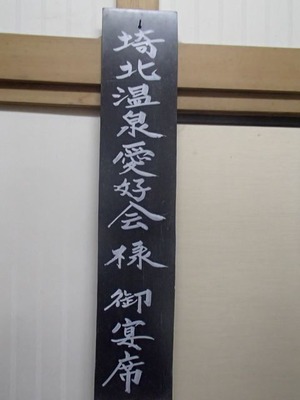 埼北温泉愛好会様御宴席